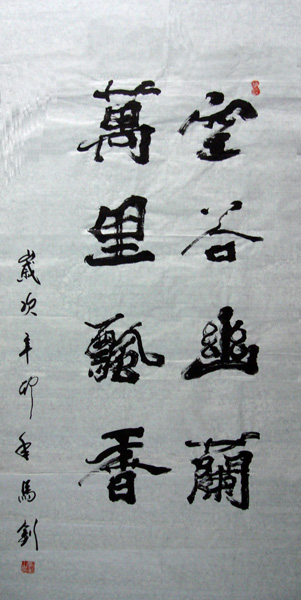 空谷幽蘭
萬里飄香
歲次辛卯年馬釗